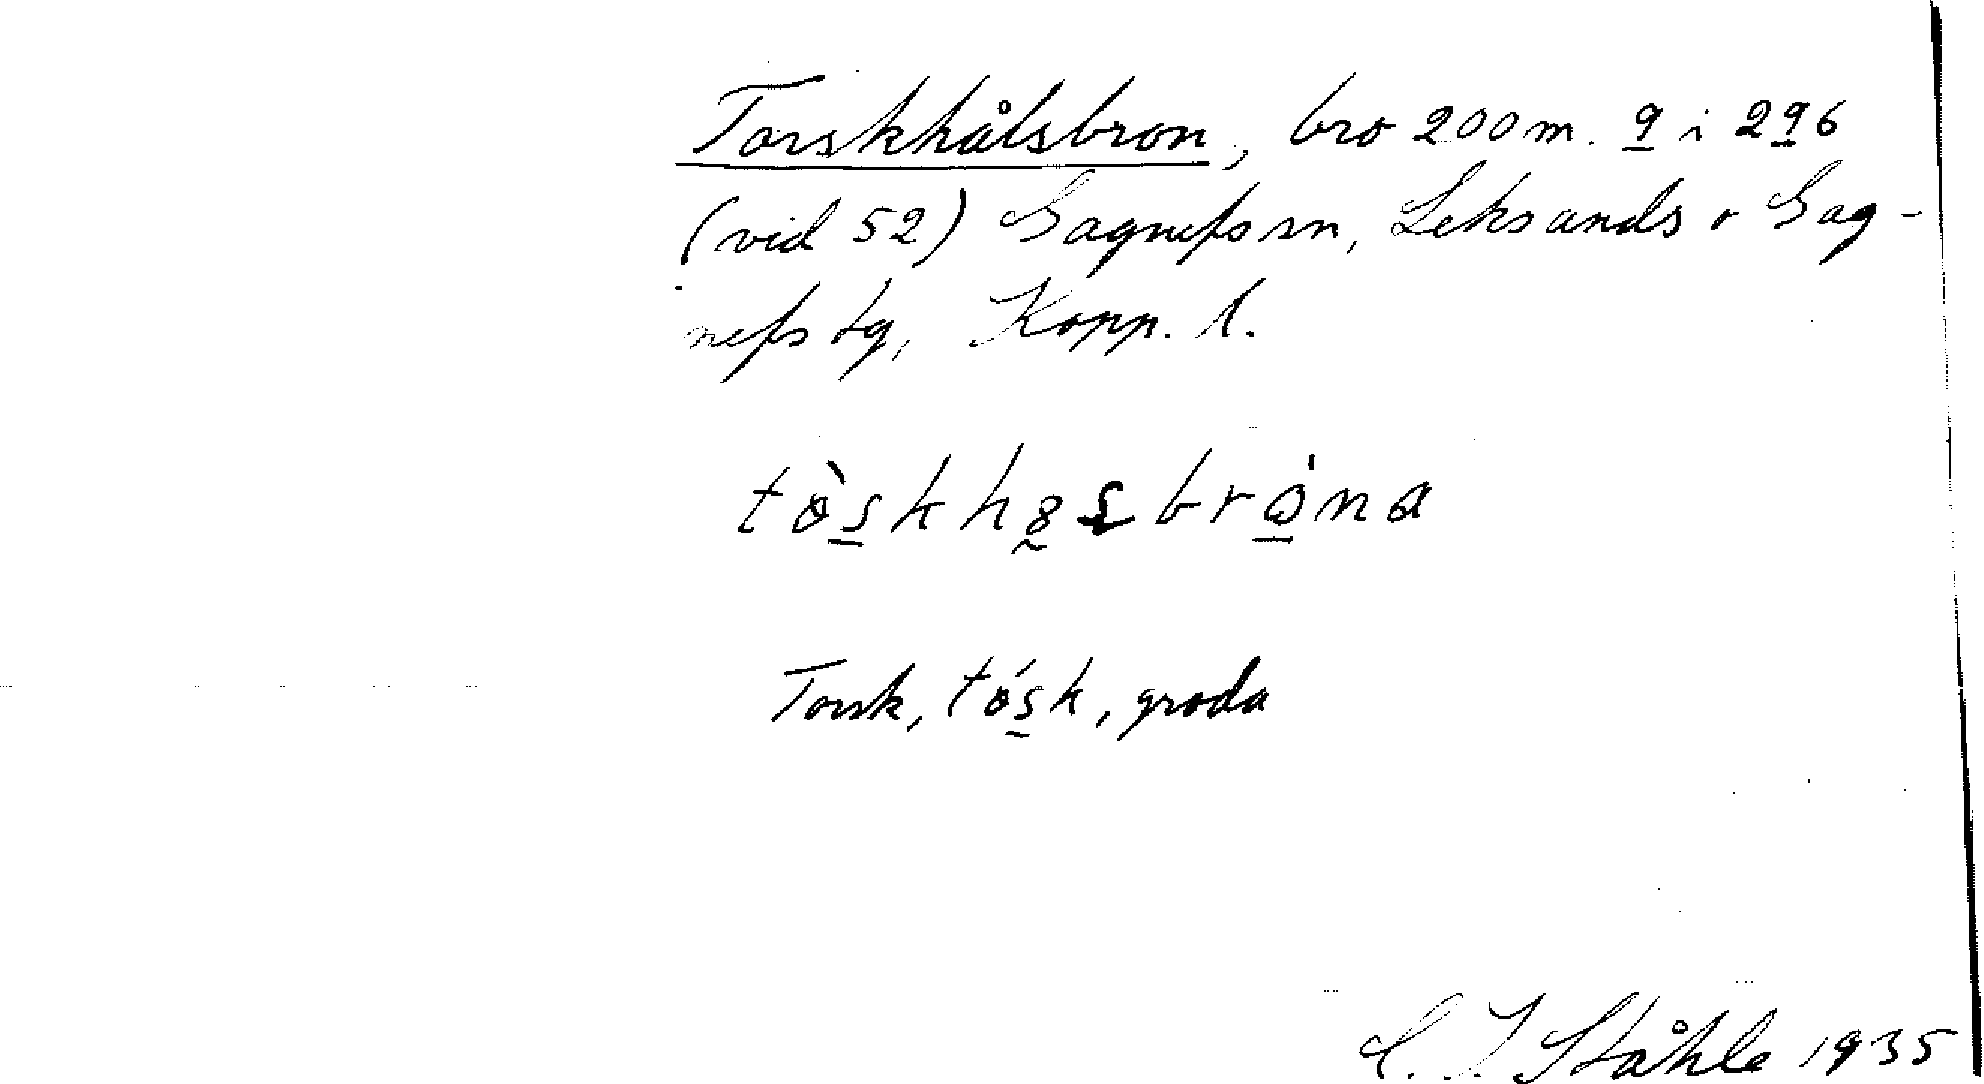 Torskhålsbron, bro 200 m. q i 296
(vid 52) Gagnefs sn, Leksands o Gag-
nefs tg, Kopp. l.
Torsk, tósk, groda
C. I. Ståhle 1935